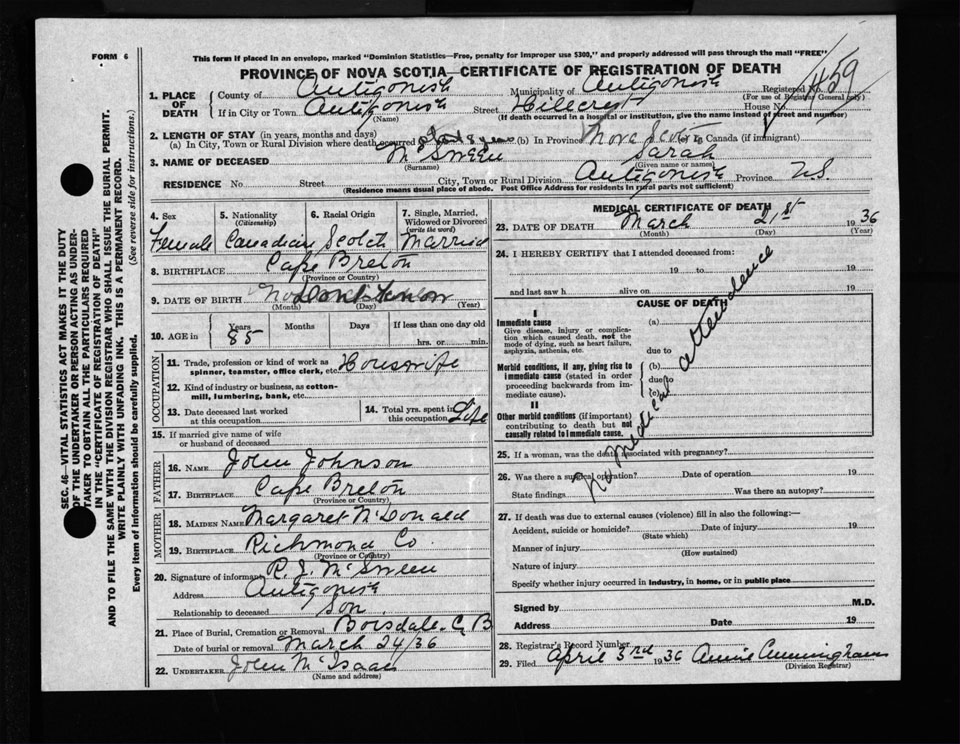 FORM 6
This form if placed in an envelope, marked "Dominion Statistics—Free, penalty for improper use $300," and properly addressed will pass through the mail "FREE"
PROVINCE OF NOVA SCOTIA—CERTIFICATE OF REGISTRATION OF DEATH
1. PLACE OF DEATH { County of Antigonish Municipality of Antigonish Registered No. 459
(For use of Registrar General only)
If in City or Town Antigonish Street Hillcrest House No.
(Name) (If death occurred in a hospital or institution, give the name instead of street and number)
2. LENGTH OF STAY (in years, months and days)
(a) In City, Town or Rural Division where death occurred 8 years (b) In Province Nova Scotia in Canada (if immigrant)
3. NAME OF DECEASED McSween Sarah
(Surname) (Given name or names)
RESIDENCE No. Street City, Town or Rural Division Antigonish Province N.S.
(Residence means usual place of abode. Post Office Address for residents in rural parts not sufficient)
4. Sex 5. Nationality (Citizenship) 6. Racial Origin 7. Single, Married, Widowed or Divorced (write the word)
Female Canadian Scotch Married
8. BIRTHPLACE Cape Breton
(Province or Country)
9. DATE OF BIRTH Not
(Month) (Day) (Year)
10. AGE in { Years Months Days If less than one day old
85 hrs. or min.
OCCUPATION
11. Trade, profession or kind of work as spinner, teamster, office clerk, etc. Housewife
12. Kind of industry or business, as cotton-mill, lumbering, bank, etc.
13. Date deceased last worked at this occupation 14. Total yrs. spent in this occupation Life
15. If married give name of wife or husband of deceased
FATHER
16. NAME John Johnson
17. BIRTHPLACE Cape Breton
(Province or Country)
MOTHER
18. MAIDEN NAME Margaret McDonald
19. BIRTHPLACE Richmond Co
(Province or Country)
20. Signature of informant R. J. McSween
Address Antigonish
Relationship to deceased Son
21. Place of Burial, Cremation or Removal Boisdale. C B
Date of burial or removal March 24/36
22. UNDERTAKER John McIsaac
(Name and address)
MEDICAL CERTIFICATE OF DEATH
23. DATE OF DEATH March 21st 1936
(Month) (Day) (Year)
24. I HEREBY CERTIFY that I attended deceased from:
19 to 19
and last saw h alive on 19
CAUSE OF DEATH
I
Immediate cause (a)
Give disease, injury or complication which caused death, not the mode of dying, such as heart failure, asphyxia, asthenia, etc.
due to
Morbid conditions, if any, giving rise to immediate cause (stated in order proceeding backwards from immediate cause). (b)
due to
(c)
II
Other morbid conditions (if important) contributing to death but not causally related to immediate cause.
No medical attendence
25. If a woman, was the death associated with pregnancy?
26. Was there a surgical operation? Date of operation 19
State findings Was there an autopsy?
27. If death was due to external causes (violence) fill in also the following:—
Accident, suicide or homicide? Date of injury 19
(State which)
Manner of injury
(How sustained)
Nature of injury
Specify whether injury occurred in industry, in home, or in public place
Signed by M.D.
Address Date 19
28. Registrar's Record Number
29. Filed April 3rd 1936 Annie Cunningham
(Division Registrar)
SEC. 46—VITAL STATISTICS ACT MAKES IT THE DUTY
OF THE UNDERTAKER OR PERSON ACTING AS UNDER-
TAKER TO OBTAIN ALL THE PARTICULARS REQUIRED
IN THE "CERTIFICATE OF REGISTRATION OF DEATH"
AND TO FILE THE SAME WITH THE DIVISION REGISTRAR WHO SHALL ISSUE THE BURIAL PERMIT.
WRITE PLAINLY WITH UNFADING INK. THIS IS A PERMANENT RECORD.
Every item of information should be carefully supplied. (See reverse side for instructions.)